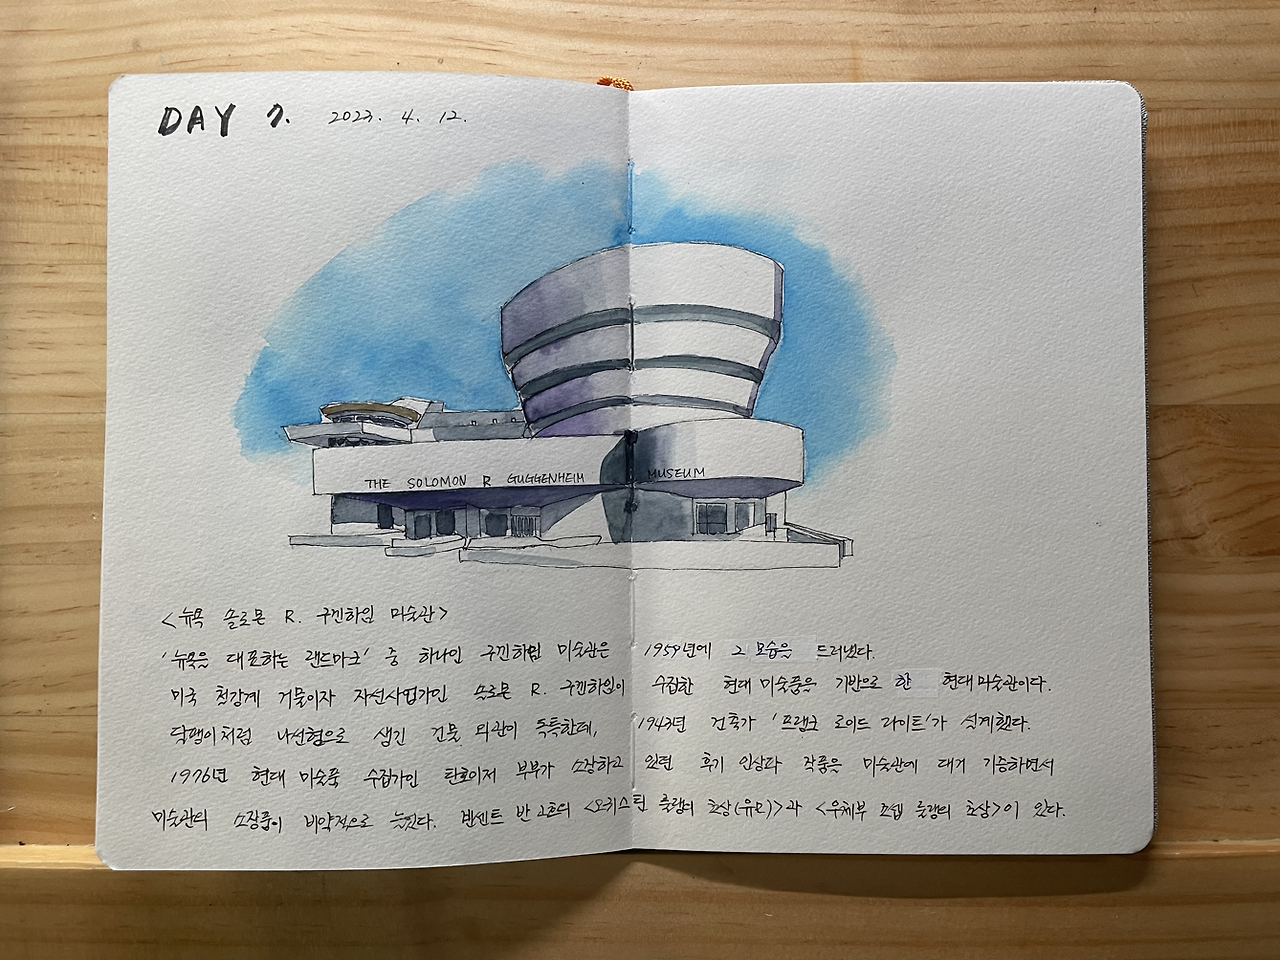 DAY 7. 2023. 4. 12.
THE SOLOMON R GUGGENHEIM MUSEUM
<뉴욕 솔로몬 R. 구겐하임 미술관>
'뉴욕을 대표하는 랜드마크' 중 하나인 구겐하임 미술관은 1959년에 그 모습을 드러냈다.
미국 철강계 거물이자 자선사업가인 솔로몬 R. 구겐하임이 수집한 현대미술품을 기반으로 한 현대미술관이다.
달팽이처럼 나선형으로 생긴 건물 외관이 독특한데, 1943년 건축가 '프랭크 로이드 라이트'가 설계했다.
1976년 현대 미술품 수집가인 탄호이저 부부가 소장하고 있던 후기 인상파 작품을 미술관에 대거 기증하면서
미술관의 소장품이 비약적으로 늘었다. 빈센트 반 고흐의 <오귀스틴 룰랭의 초상(유모)>과 <우체부 조셉 룰랭의 초상>이 있다.